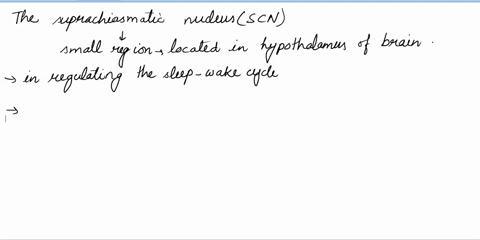 The suprachiasmatic nucleus (SCN)
↓
small region → located in hypothalamus of brain.
→ in regulating the sleep-wake cycle
→